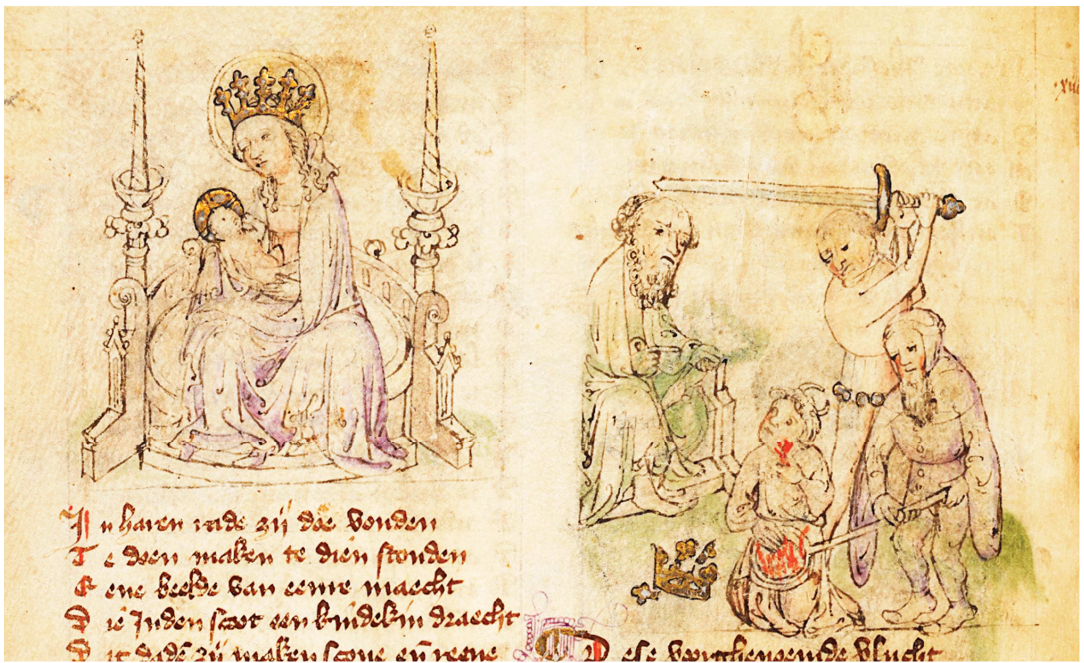 In haren rade zij doe vonden
Te doen maken te dien stonden
Eene beelde van eenre maecht
Die Inden scoot een kindekin draecht
Dit dadē zij maken scone eñ reene
Dese vorghenoemde vlucht